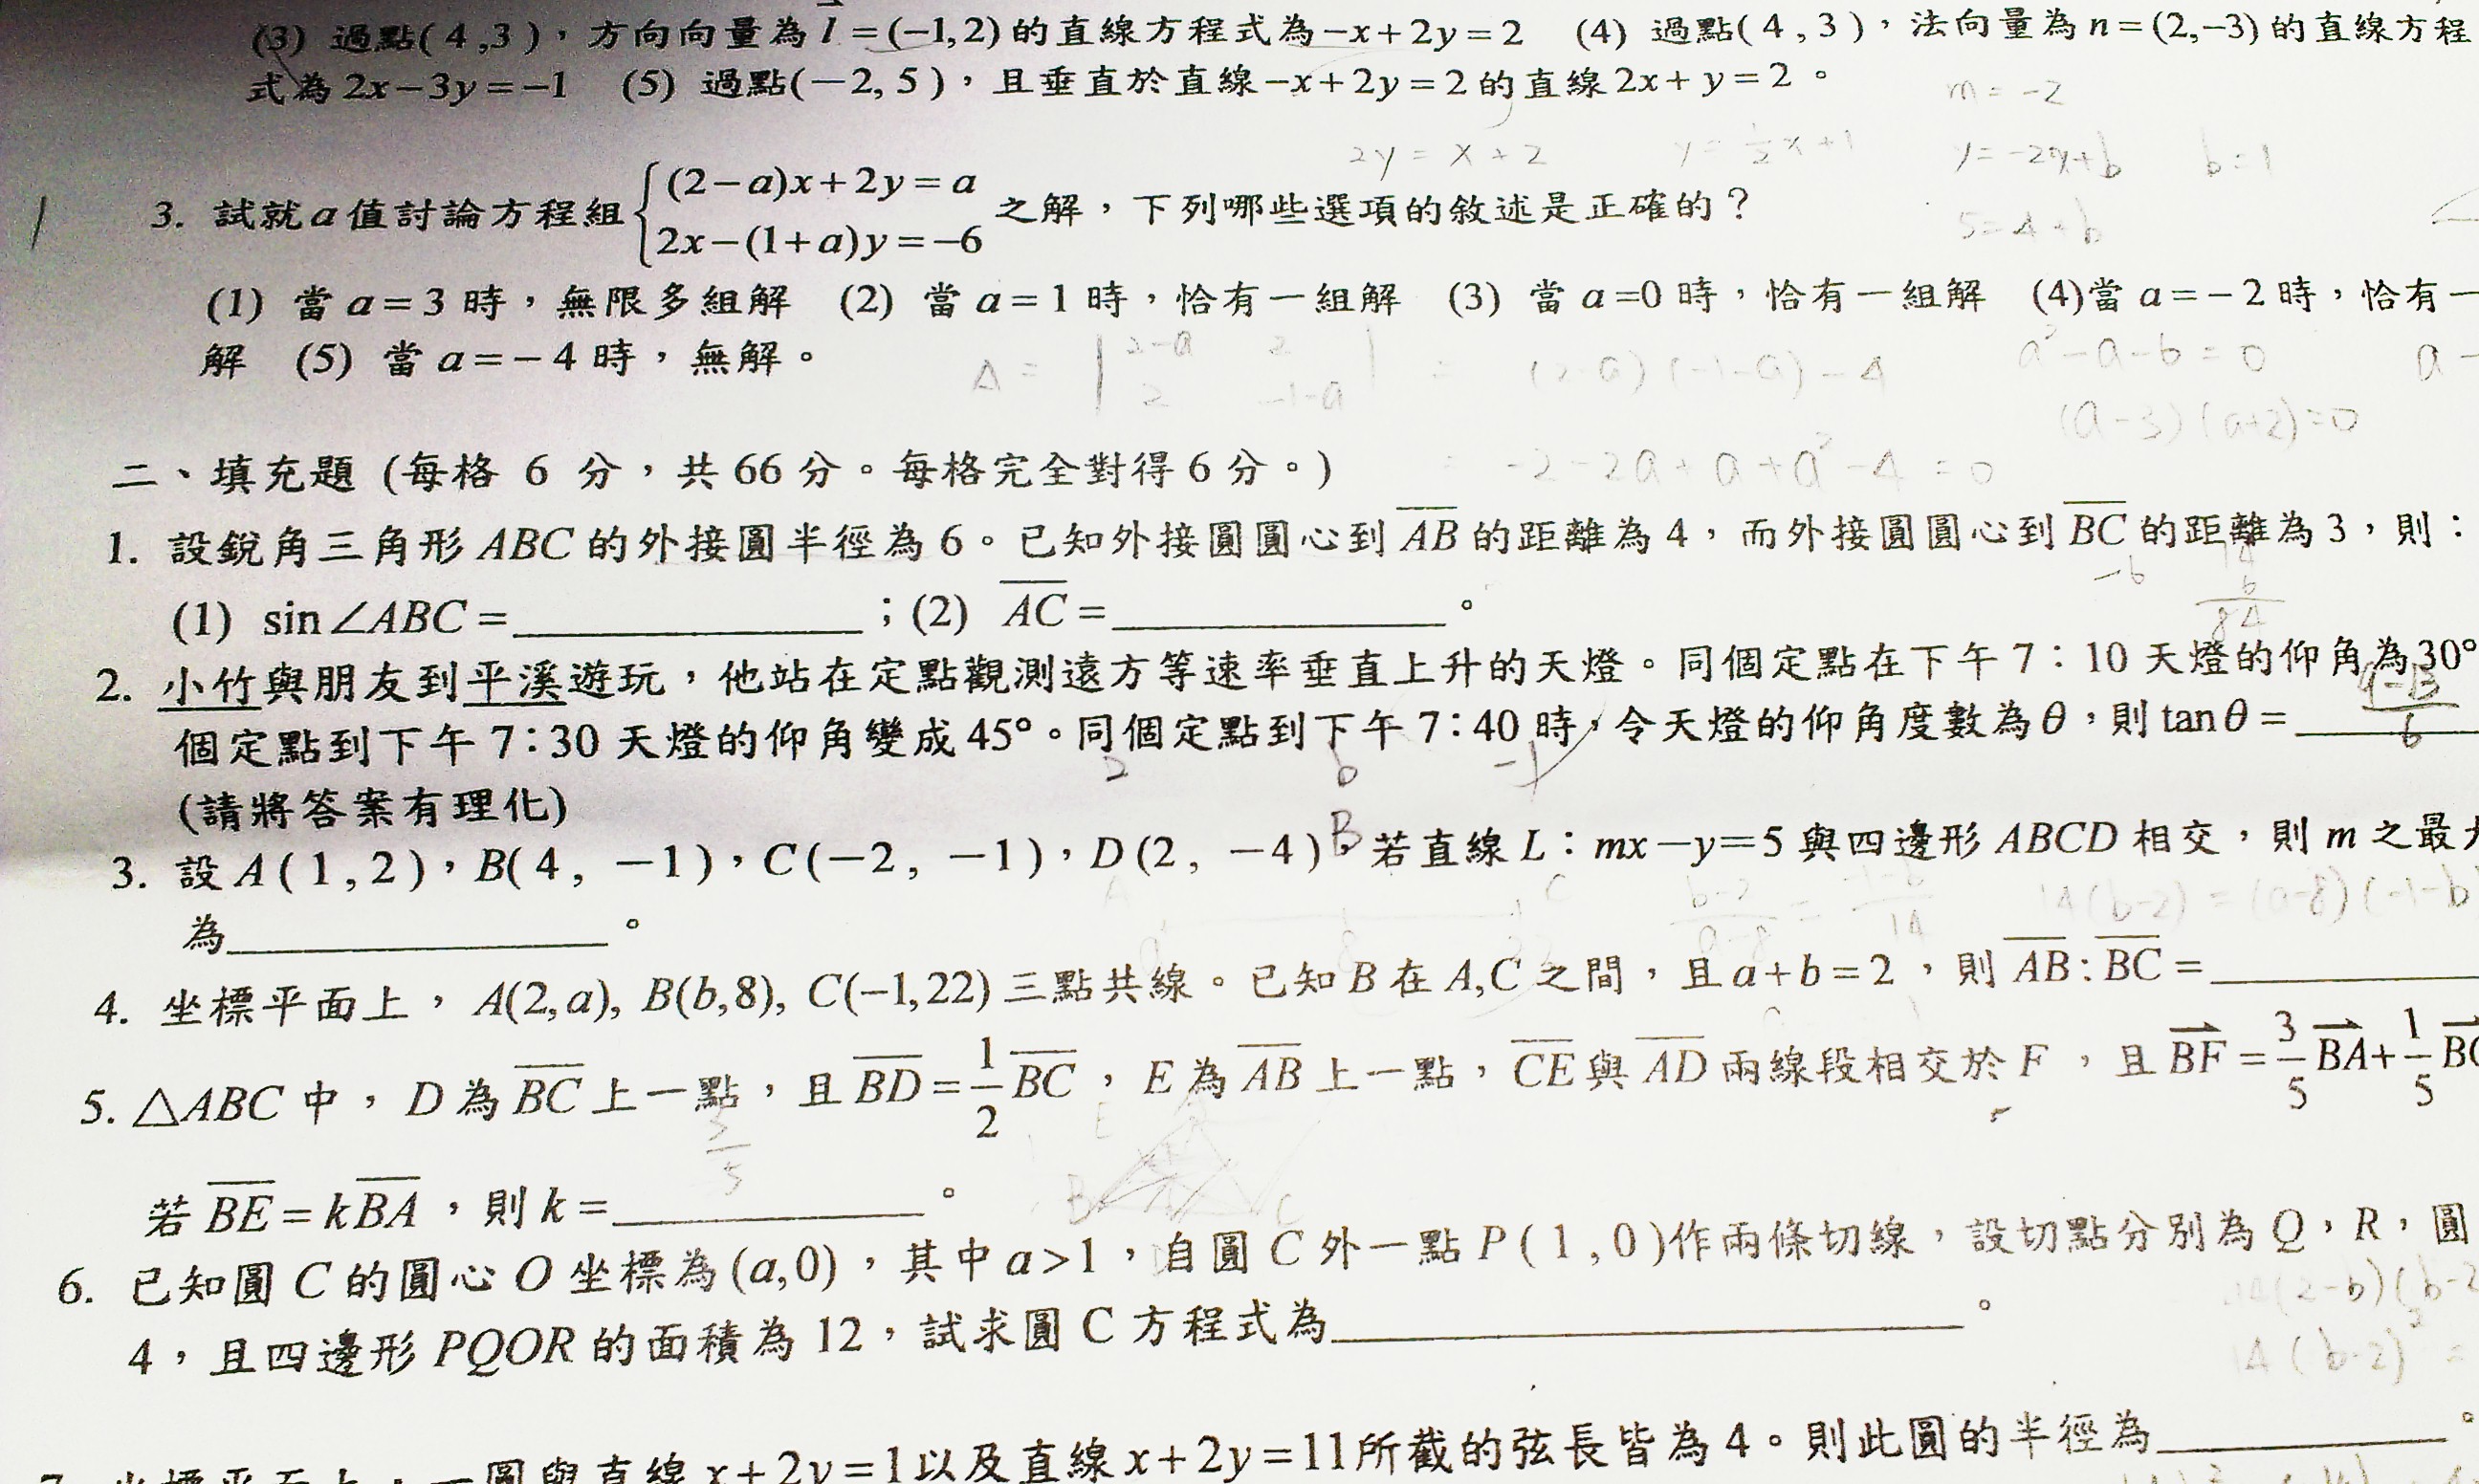 (3) 過點(4,3),方向向量為 l⃗=(−1,2)的直線方程式為−x+2y=2 (4) 過點(4,3),法向量為n=(2,−3)的直線方程
式為2x−3y=−1 (5) 過點(−2,5),且垂直於直線−x+2y=2的直線2x+y=2。
m=-2
2y=x+2 y=½x+1 y=-2x+b b=1
5=4+b
3. 試就a值討論方程組{(2−a)x+2y=a
2x−(1+a)y=−6 之解,下列哪些選項的敘述是正確的?
(1) 當a=3時,無限多組解 (2) 當a=1時,恰有一組解 (3) 當a=0時,恰有一組解 (4)當a=−2時,恰有一
解 (5) 當a=−4時,無解。
Δ = | 2-a 2
2 -1-a | = (2-a)(-1-a)-4 a²-a-6=0 a-
(a-3)(a+2)=0
= -2-2a+a+a²-4=0
二、填充題 (每格 6 分,共66分。每格完全對得6分。)
1. 設銳角三角形ABC的外接圓半徑為6。已知外接圓圓心到A̅B̅的距離為4,而外接圓圓心到B̅C̅的距離為3,則:
(1) sin∠ABC=____________;(2) A̅C̅=____________。
2. 小竹與朋友到平溪遊玩,他站在定點觀測遠方等速率垂直上升的天燈。同個定點在下午7:10天燈的仰角為30°
個定點到下午7:30天燈的仰角變成45°。同個定點到下午7:40時,令天燈的仰角度數為θ,則tanθ=______
(請將答案有理化)
3. 設A(1,2),B(4, −1),C(−2, −1),D(2, −4),若直線L:mx−y=5與四邊形ABCD相交,則m之最大
為____________。
14(b-2)=(a-8)(-1-b)
4. 坐標平面上,A(2,a), B(b,8), C(−1,22)三點共線。已知B在A,C之間,且a+b=2,則A̅B̅:B̅C̅=____________
5. △ABC中,D為B̅C̅上一點,且B̅D̅=1/2 B̅C̅,E為A̅B̅上一點,C̅E̅與A̅D̅兩線段相交於F,且BF⃗=3/5 BA⃗+1/5 BC⃗
若B̅E̅=kB̅A̅,則k=____________。
6. 已知圓C的圓心O坐標為(a,0),其中a>1,自圓C外一點P(1,0)作兩條切線,設切點分別為Q,R,圓
4,且四邊形PQOR的面積為12,試求圓C方程式為____________。
14(2-b)(b-2
14(b-2)²=
7. 坐標平面上,一圓與直線x+2y=1以及直線x+2y=11所截的弦長皆為4。則此圓的半徑為____________。